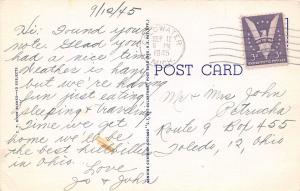 9/10/45
Hi: Found your
note. Glad you
had a nice time.
Weather is hang
but we're having
fun just eating
sleeping & traveling
time we get
home we'll be
the best hillbillies
in Ohio.
Love
Jo & John
SEP 11
1945
POST CARD
Mr & Mrs John
Petrucha
Route 9 Box 455
Toledo, 12, Ohio